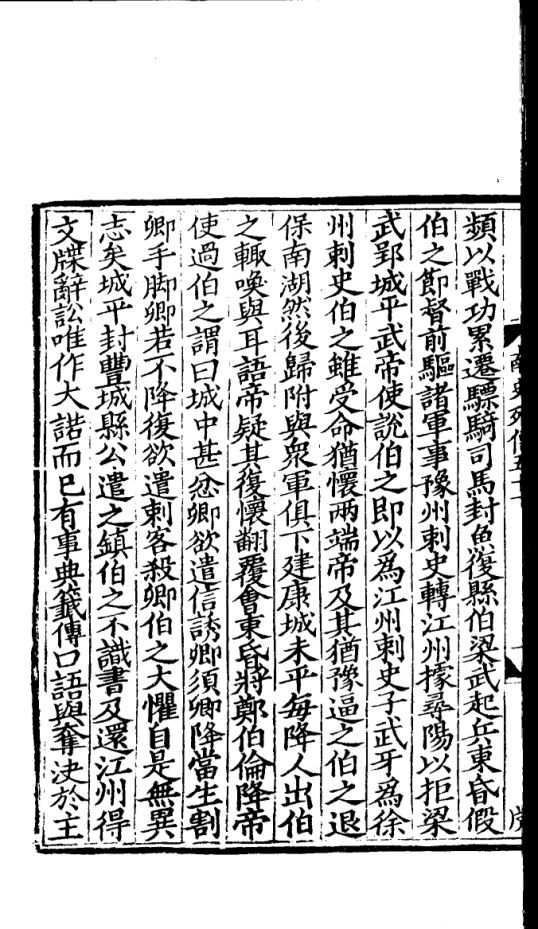 頻以戰功累遷驃騎司馬封魚復縣伯梁武起兵東昏假
伯之節督前驅諸軍事豫州刺史轉江州據尋陽以拒梁
武郢城平武帝使說伯之即以爲江州刺史子武牙爲徐
州刺史伯之雖受命猶懷两端帝及其猶豫逼之伯之退
保南湖然後歸附與衆軍俱下建康城未平每降人出伯
之輙喚與耳語帝疑其復懷翻覆會東昏將鄭伯倫降帝
使過伯之謂曰城中甚忿卿欲遣信誘卿須卿降當生割
卿手脚卿若不降復欲遣刺客殺卿伯之大懼自是無異
志矣城平封豐城縣公遣之鎮伯之不識書及還江州得
文牒辭訟唯作大諾而已有事典籤傳口語與奪決於主